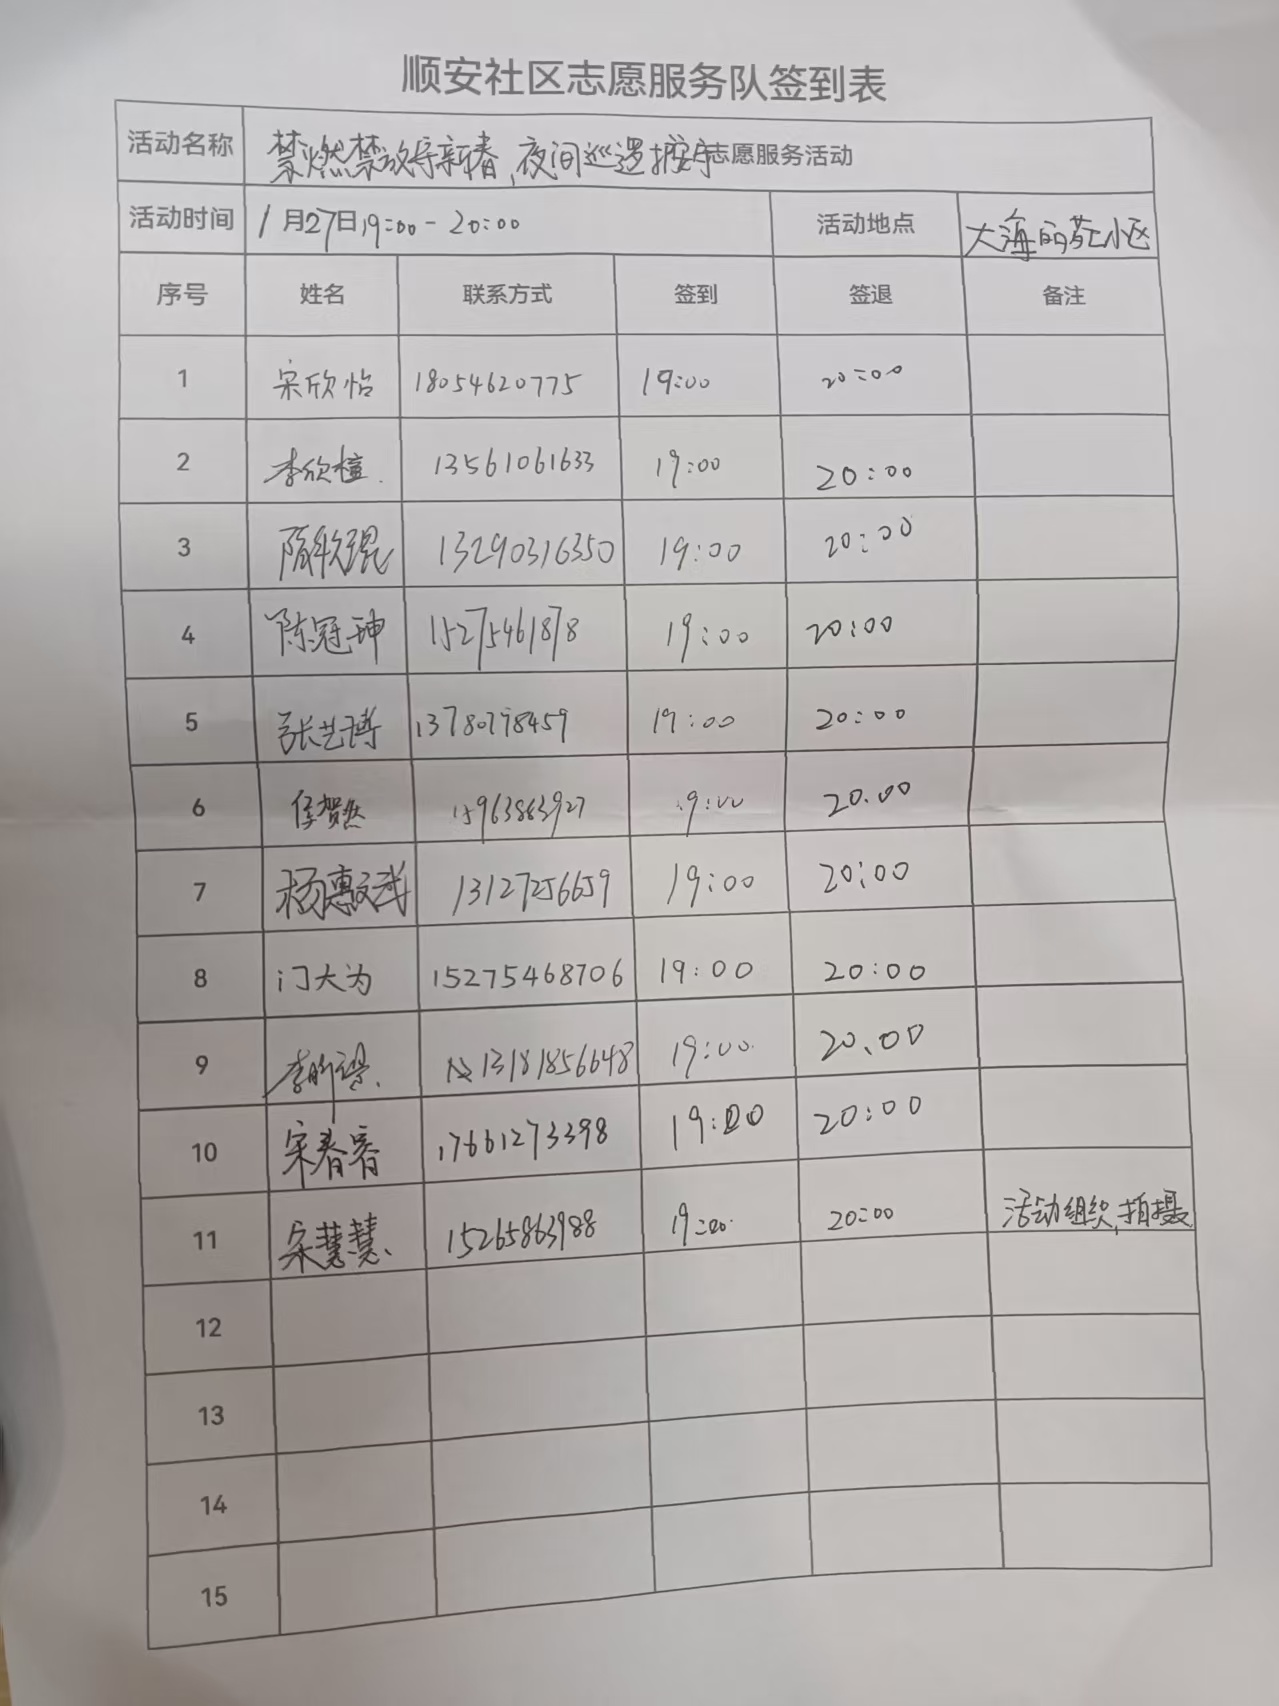 顺安社区志愿服务队签到表
活动名称 禁燃禁放导新春,夜间巡逻护安宁志愿服务活动
活动时间 1月27日19:00-20:00 活动地点 大海丽苑小区
序号 姓名 联系方式 签到 签退 备注
1 宋欣怡 18054620775 19:00 20:00
2 李欣檀. 13561061633 19:00 20:00
3 隋 13290316350 19:00 20:00
4 陈冠珅 15275461878 19:00 20:00
5 张艺博 13780798459 19:00 20:00
6 侯贺然 15963863927 19:00 20.00
7 杨惠斌 13127256659 19:00 20:00
8 门大为 15275468706 19:00 20:00
9 李 13181856648 19:00 20.00
10 宋春睿 17661273398 19:00 20:00
11 宋慧慧. 15265863988 19:00. 20:00 活动组织,拍摄
12
13
14
15